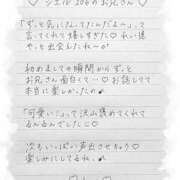 シエル206のお兄さん♡
「ずっと気になってたんだよ〜」って
言ってくれて嬉しすぎた♡ れい様
やっと出会えたね〜♡
初めましての瞬間からずっと
お兄さん面白くて… ♡ お話してて
本当に楽しかったの
「可愛い」って沢山褒めてくれて
るんるんでした♡♡
次もいっぱい声出させちゃう
楽しみにしてるね。♩